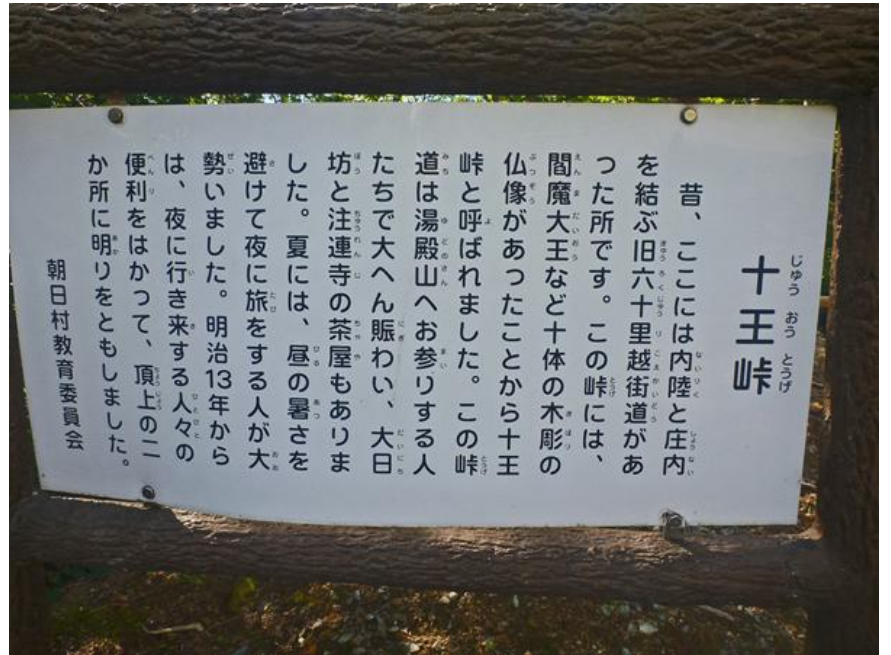 十王峠
じゅう おう とうげ
昔、ここには内陸と庄内
を結ぶ旧六十里越街道があ
った所です。この峠には、
閻魔大王など十体の木彫の
仏像があったことから十王
峠と呼ばれました。この峠
道は湯殿山へお参りする人
たちで大へん賑わい、大日
坊と注連寺の茶屋もありま
した。夏には、昼の暑さを
避けて夜に旅をする人が大
勢いました。明治13年から
は、夜に行き来する人々の
便利をはかって、頂上の二
か所に明りをともしました。
朝日村教育委員会